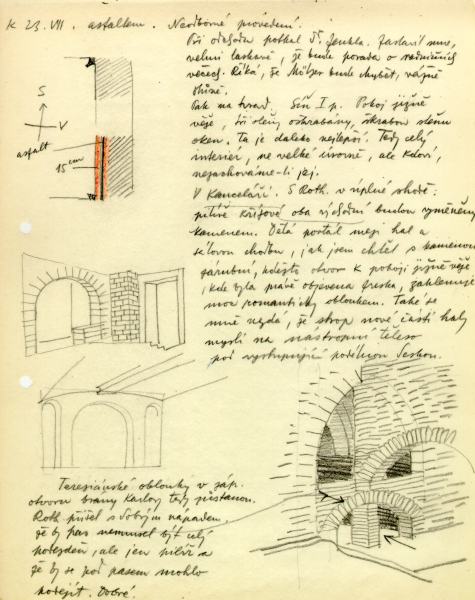 K 23. VII. asfaltem. Neodborné provedení.
Při odchodu potkal Dr. Jenkla. Zastavil mne,
velmi laskavě, že bude porada o
věcech. Říká, že bude chybět, vážně
Pak na hrad. Síň I p. Pokoj jižní
věže, tři stěny oškrabány, škrabou stěnu
oken. Ta je daleko nejlepší. Tedy celý
interiér, ne velké úrovně, ale
nezachováme-li jej.
V Kanceláři. S Roth. v úplné shodě:
pilíře křížové oba východní budou vyměněny
kamenem. Dělá portál mezi hal a
chodbu, jak jsem chtěl s kamennou
zarubní, kdežto otvor k pokoji jižní věže,
kde byla právě objevena freska, zaklenuje
romantickým obloukem. Také se
mně nezdá, že strop nové části haly
myslí na nástropní těleso
pod vystupující podélnou deskou.
S
V
asfalt
15 cm
Teresiánské oblouky v záp.
otvoru brány Karlovy tedy přestanou.
Roth přišel s dobrým nápadem,
že by pas nemusel být celý
podezděn, ale jen pilíř a
že by se pod pasem mohlo
podejít. Dobré.